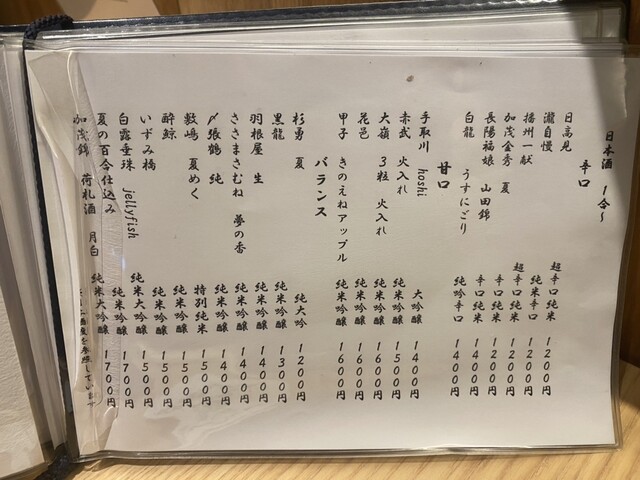 日本酒 1合~
辛口
日高見 超辛口純米 1200円
瀧自慢 純米辛口 1200円
播州一献 超辛口純米 1200円
加茂金秀 夏 辛口純米 1200円
長陽福娘 山田錦 辛口純米 1400円
白龍 うすにごり 純吟辛口 1400円
甘口
手取川 hoshi 大吟醸 1400円
赤武 火入れ 純米吟醸 1500円
大嶺 3粒 火入れ 純米吟醸 1600円
花邑 純米吟醸 1600円
甲子 きのえねアップル 純米吟醸 1600円
バランス
杉勇 夏 純大吟 1200円
黒龍 純米吟醸 1300円
羽根屋 生 純米吟醸 1400円
ささまさむね 夢の香 純米吟醸 1400円
〆張鶴 純 純米吟醸 1400円
数嶋 夏めく 特別純米 1500円
酔鯨 純米吟醸 1500円
いずみ橋 純米吟醸 1500円
白露垂珠 jellyfish 純米大吟醸 1500円
夏の百合仕込み 純米吟醸 1700円
加茂錦 荷札酒 月白 純米大吟醸 1700円